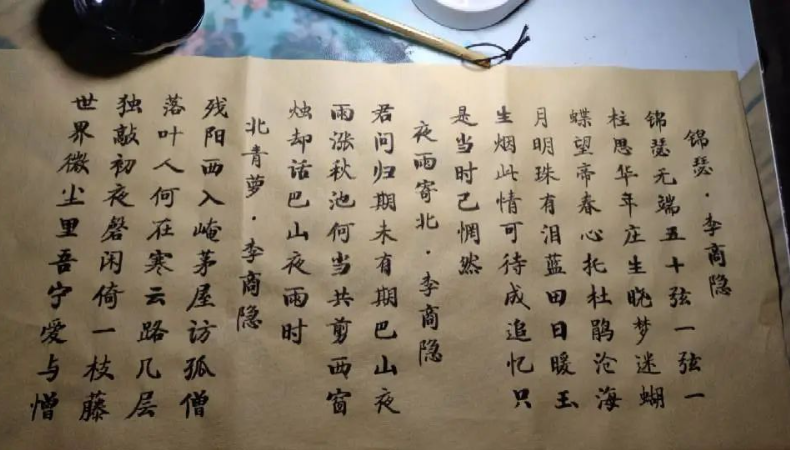 锦瑟·李商隐
锦瑟无端五十弦一弦一
柱思华年庄生晓梦迷蝴
蝶望帝春心托杜鹃沧海
月明珠有泪蓝田日暖玉
生烟此情可待成追忆只
是当时已惘然
夜雨寄北·李商隐
君问归期未有期巴山夜
雨涨秋池何当共剪西窗
烛却话巴山夜雨时
北青萝·李商隐
残阳西入崦茅屋访孤僧
落叶人何在寒云路几层
独敲初夜磬闲倚一枝藤
世界微尘里吾宁爱与憎